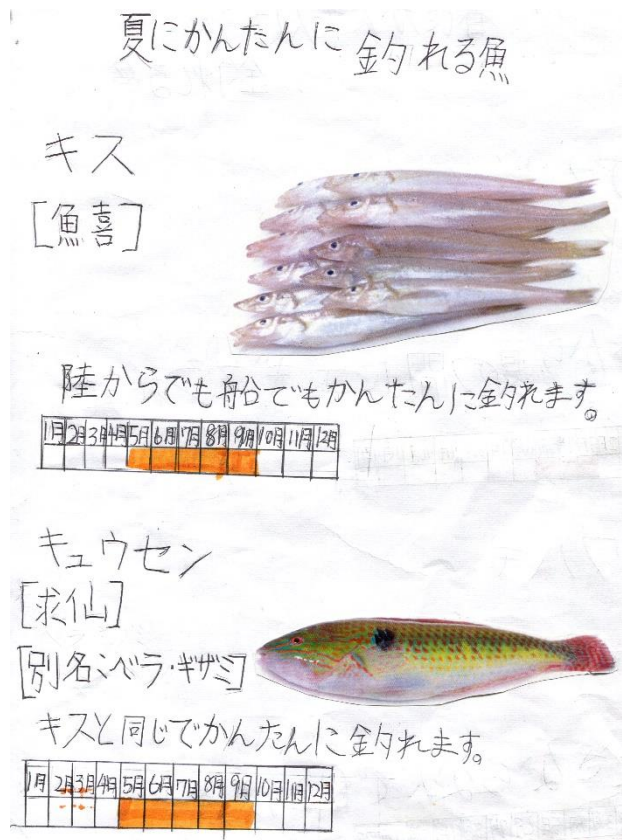 夏にかんたんに釣れる魚
キス
[魚喜]
陸からでも船でもかんたんに釣れます。
1月 2月 3月 4月 5月 6月 7月 8月 9月 10月 11月 12月
キュウセン
[求仙]
[別名:ベラ・ギザミ]
キスと同じでかんたんに釣れます。
1月 2月 3月 4月 5月 6月 7月 8月 9月 10月 11月 12月